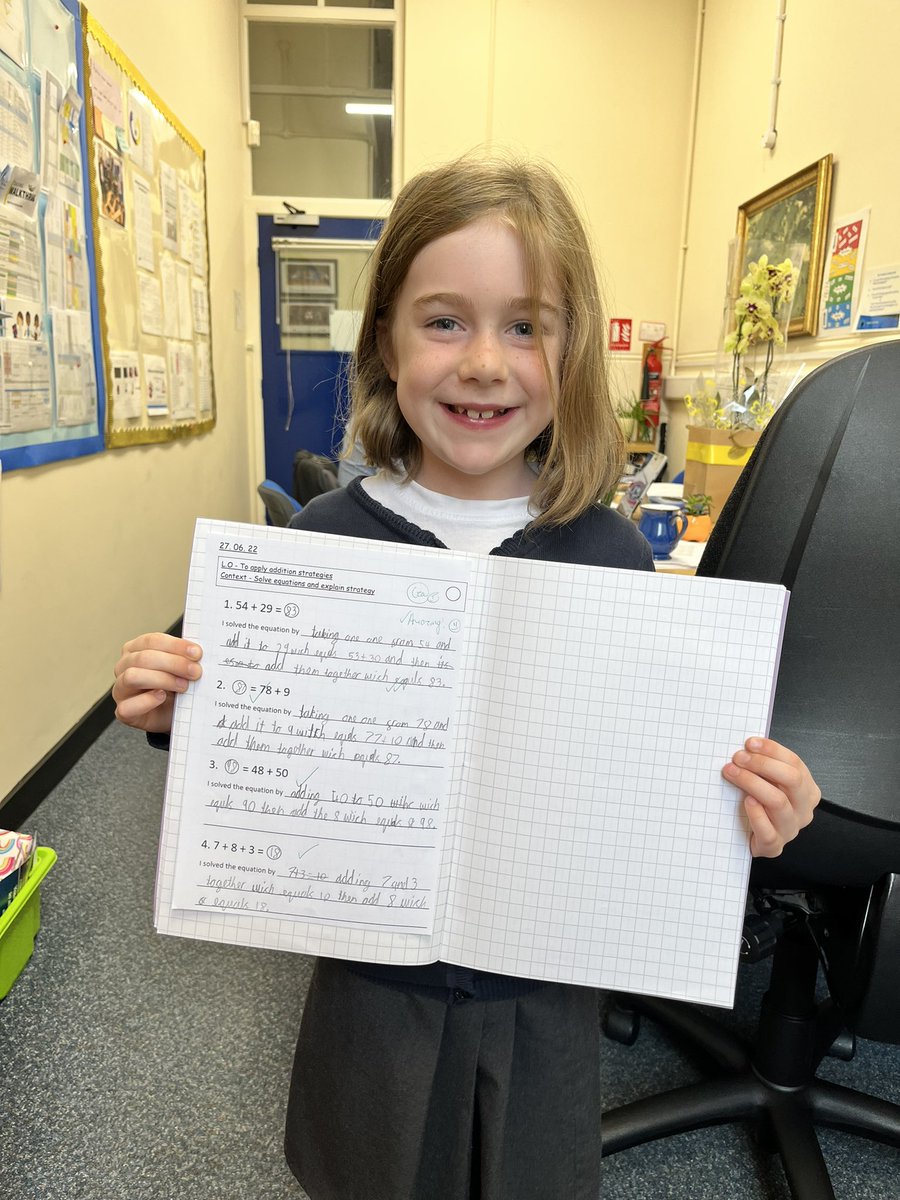 27. 06. 22
L.O - To apply addition strategies
Context - Solve equations and explain strategy
Amazing
1. 54 + 29 = 83
I solved the equation by taking one one from 54 and
add it to 29 wich equls 53+30 and then
add them together wich equls 83.
2. 87 = 78 + 9
I solved the equation by taking one one from 78 and
add it to 9 witch equls 77+10 and then
add them together wich equls 87.
3. 98 = 48 + 50
I solved the equation by adding 40 to 50 wich
equls 90 then add the 8 wich equls 98.
4. 7 + 8 + 3 = 18
I solved the equation by 7+3=10 adding 7 and 3
together wich equals 10 then add 8 wich
equals 18.